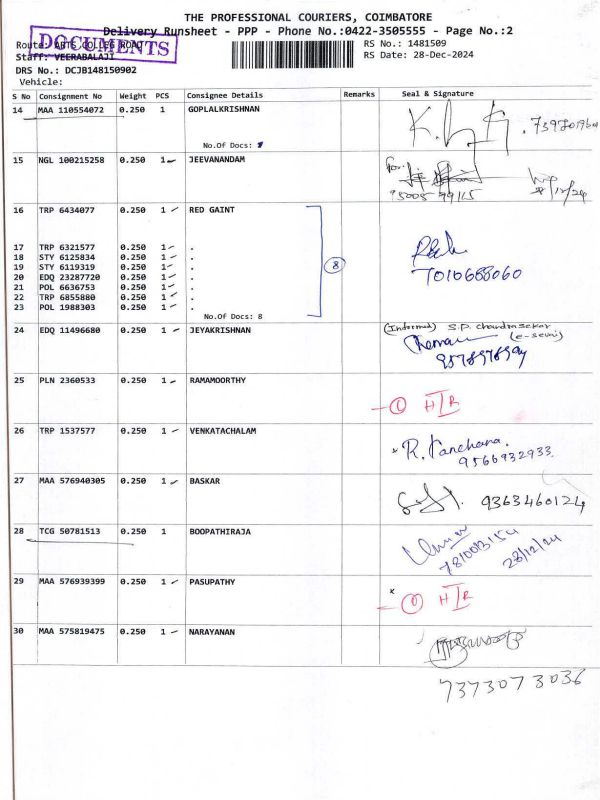 THE PROFESSIONAL COURIERS, COIMBATORE
Delivery Runsheet - PPP - Phone No.:0422-3505555 - Page No.:2
Route: ARTS COLLEG ROAD
DOCUMENTS
RS No.: 1481509
Staff: VEERABALAJI
RS Date: 28-Dec-2024
DRS No.: DCJB148150902
Vehicle:
S No Consignment No Weight PCS Consignee Details Remarks Seal & Signature
14 MAA 110554072 0.250 1 GOPLALKRISHNAN
No.Of Docs:
15 NGL 100215258 0.250 1 JEEVANANDAM
for.
16 TRP 6434077 0.250 1 RED GAINT
17 TRP 6321577 0.250 1 .
18 STY 6125834 0.250 1 .
19 STY 6119319 0.250 1 .
20 EDQ 23287720 0.250 1 .
21 POL 6636753 0.250 1 .
22 TRP 6855880 0.250 1 .
23 POL 1988303 0.250 1 .
8
7010688060
No.Of Docs: 8
24 EDQ 11496680 0.250 1 JEYAKRISHNAN
(Informed) S.P. Chandrasekar
(e-sevai)
25 PLN 2360533 0.250 1 RAMAMOORTHY
HIR
26 TRP 1537577 0.250 1 VENKATACHALAM
R. Kanchana.
9566932933.
27 MAA 576940305 0.250 1 BASKAR
9363460124
28 TCG 50781513 0.250 1 BOOPATHIRAJA
28/12/24
29 MAA 576939399 0.250 1 PASUPATHY
HIR
30 MAA 575819475 0.250 1 NARAYANAN
7373073036